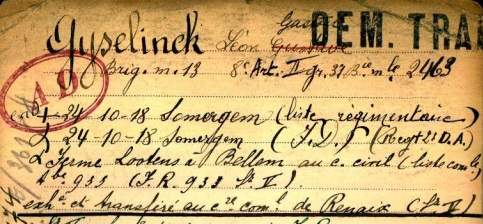 Gyselinck Léon Gustave DEM. TRA
Brig. m. 13 8e Art. II gr. 37 Bie mle 2463
AD
+ 24-10-18 Somergem (liste régimentaire)
24 10-18 Somergem (F.D.) (Recgt 2e D.A.)
Ferme Lootens à Bellem au c. civil (liste comle)
tbe 933 (F.R. 933 Sr V)
exhé et transféré au cre coml de Renaix (Sr V)